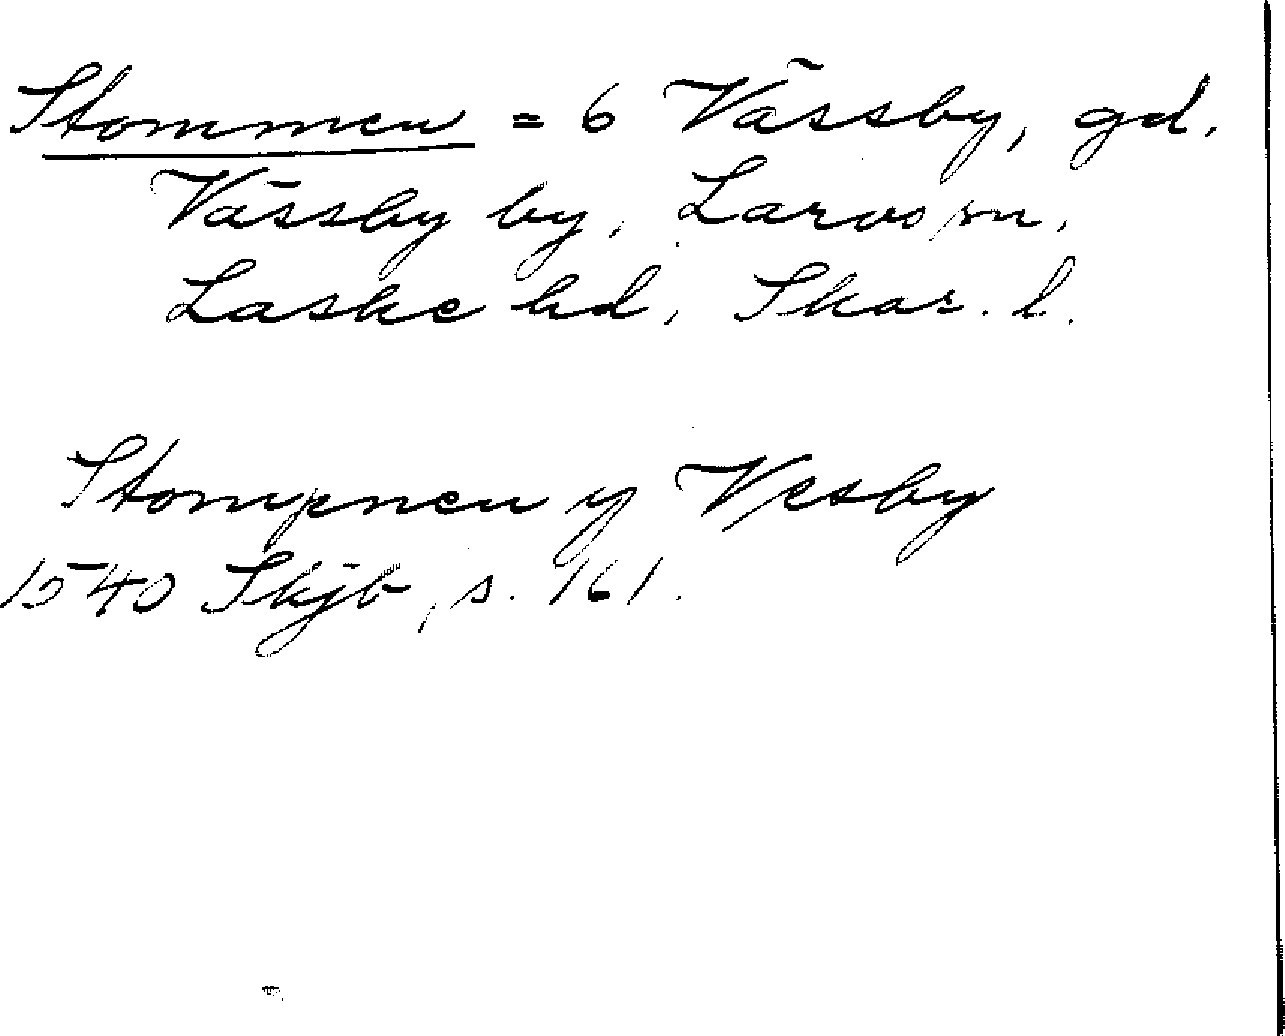 Stommen = 6 Vässby, gd,
Vässby by, Larvs sn,
Laske hd, Skar. l.
Stompnen y Vesby
1540 Skjb, s. 161.